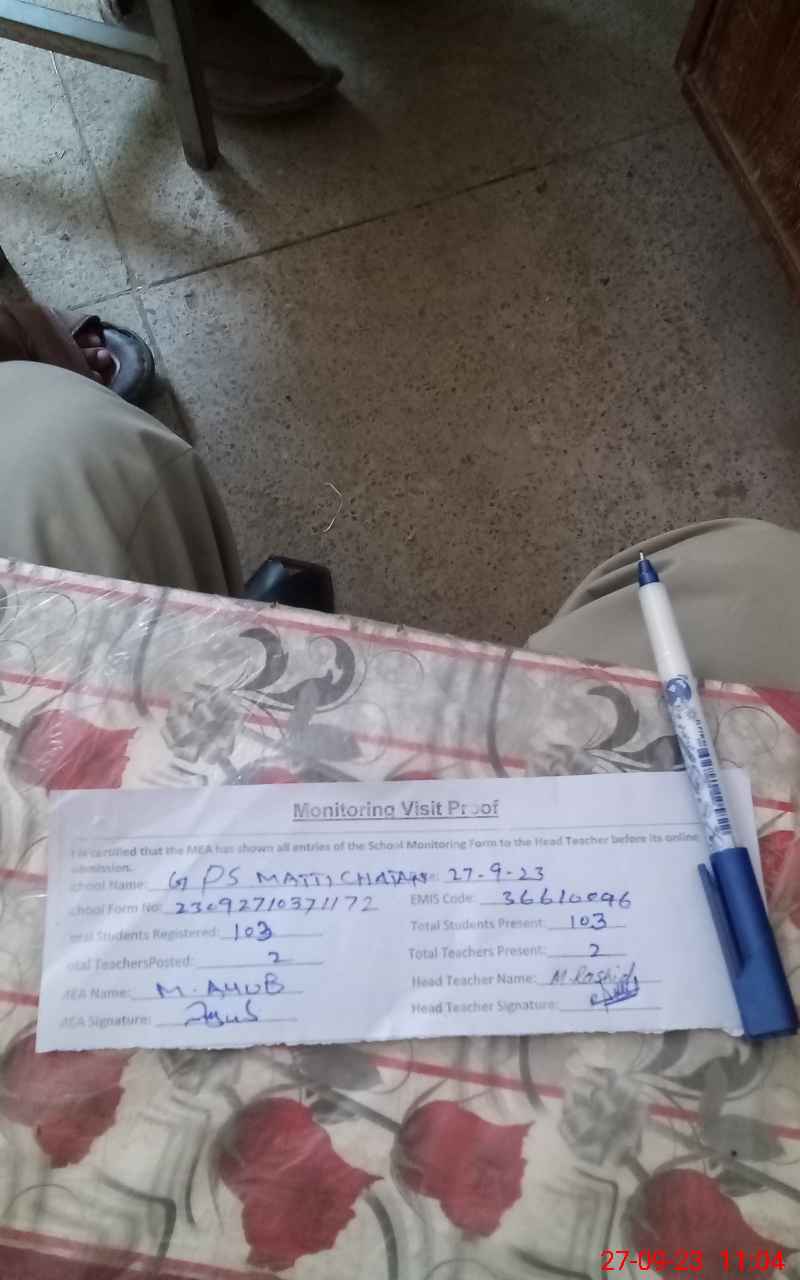 Monitoring Visit Proof
is certified that the MEA has shown all entries of the School Monitoring Form to the Head Teacher before its online
mission.
chool Name: G PS MATTI CHATAN 27-9-23
chool Form No: 23092710371172 EMIS Code: 36610096
Students Registered: 103 Total Students Present: 103
otal TeachersPosted: 2 Total Teachers Present: 2
MEA Name: M. AYUB Head Teacher Name: M.Rashid
MEA Signature: Ayub Head Teacher Signature:
27-09-23 11:04